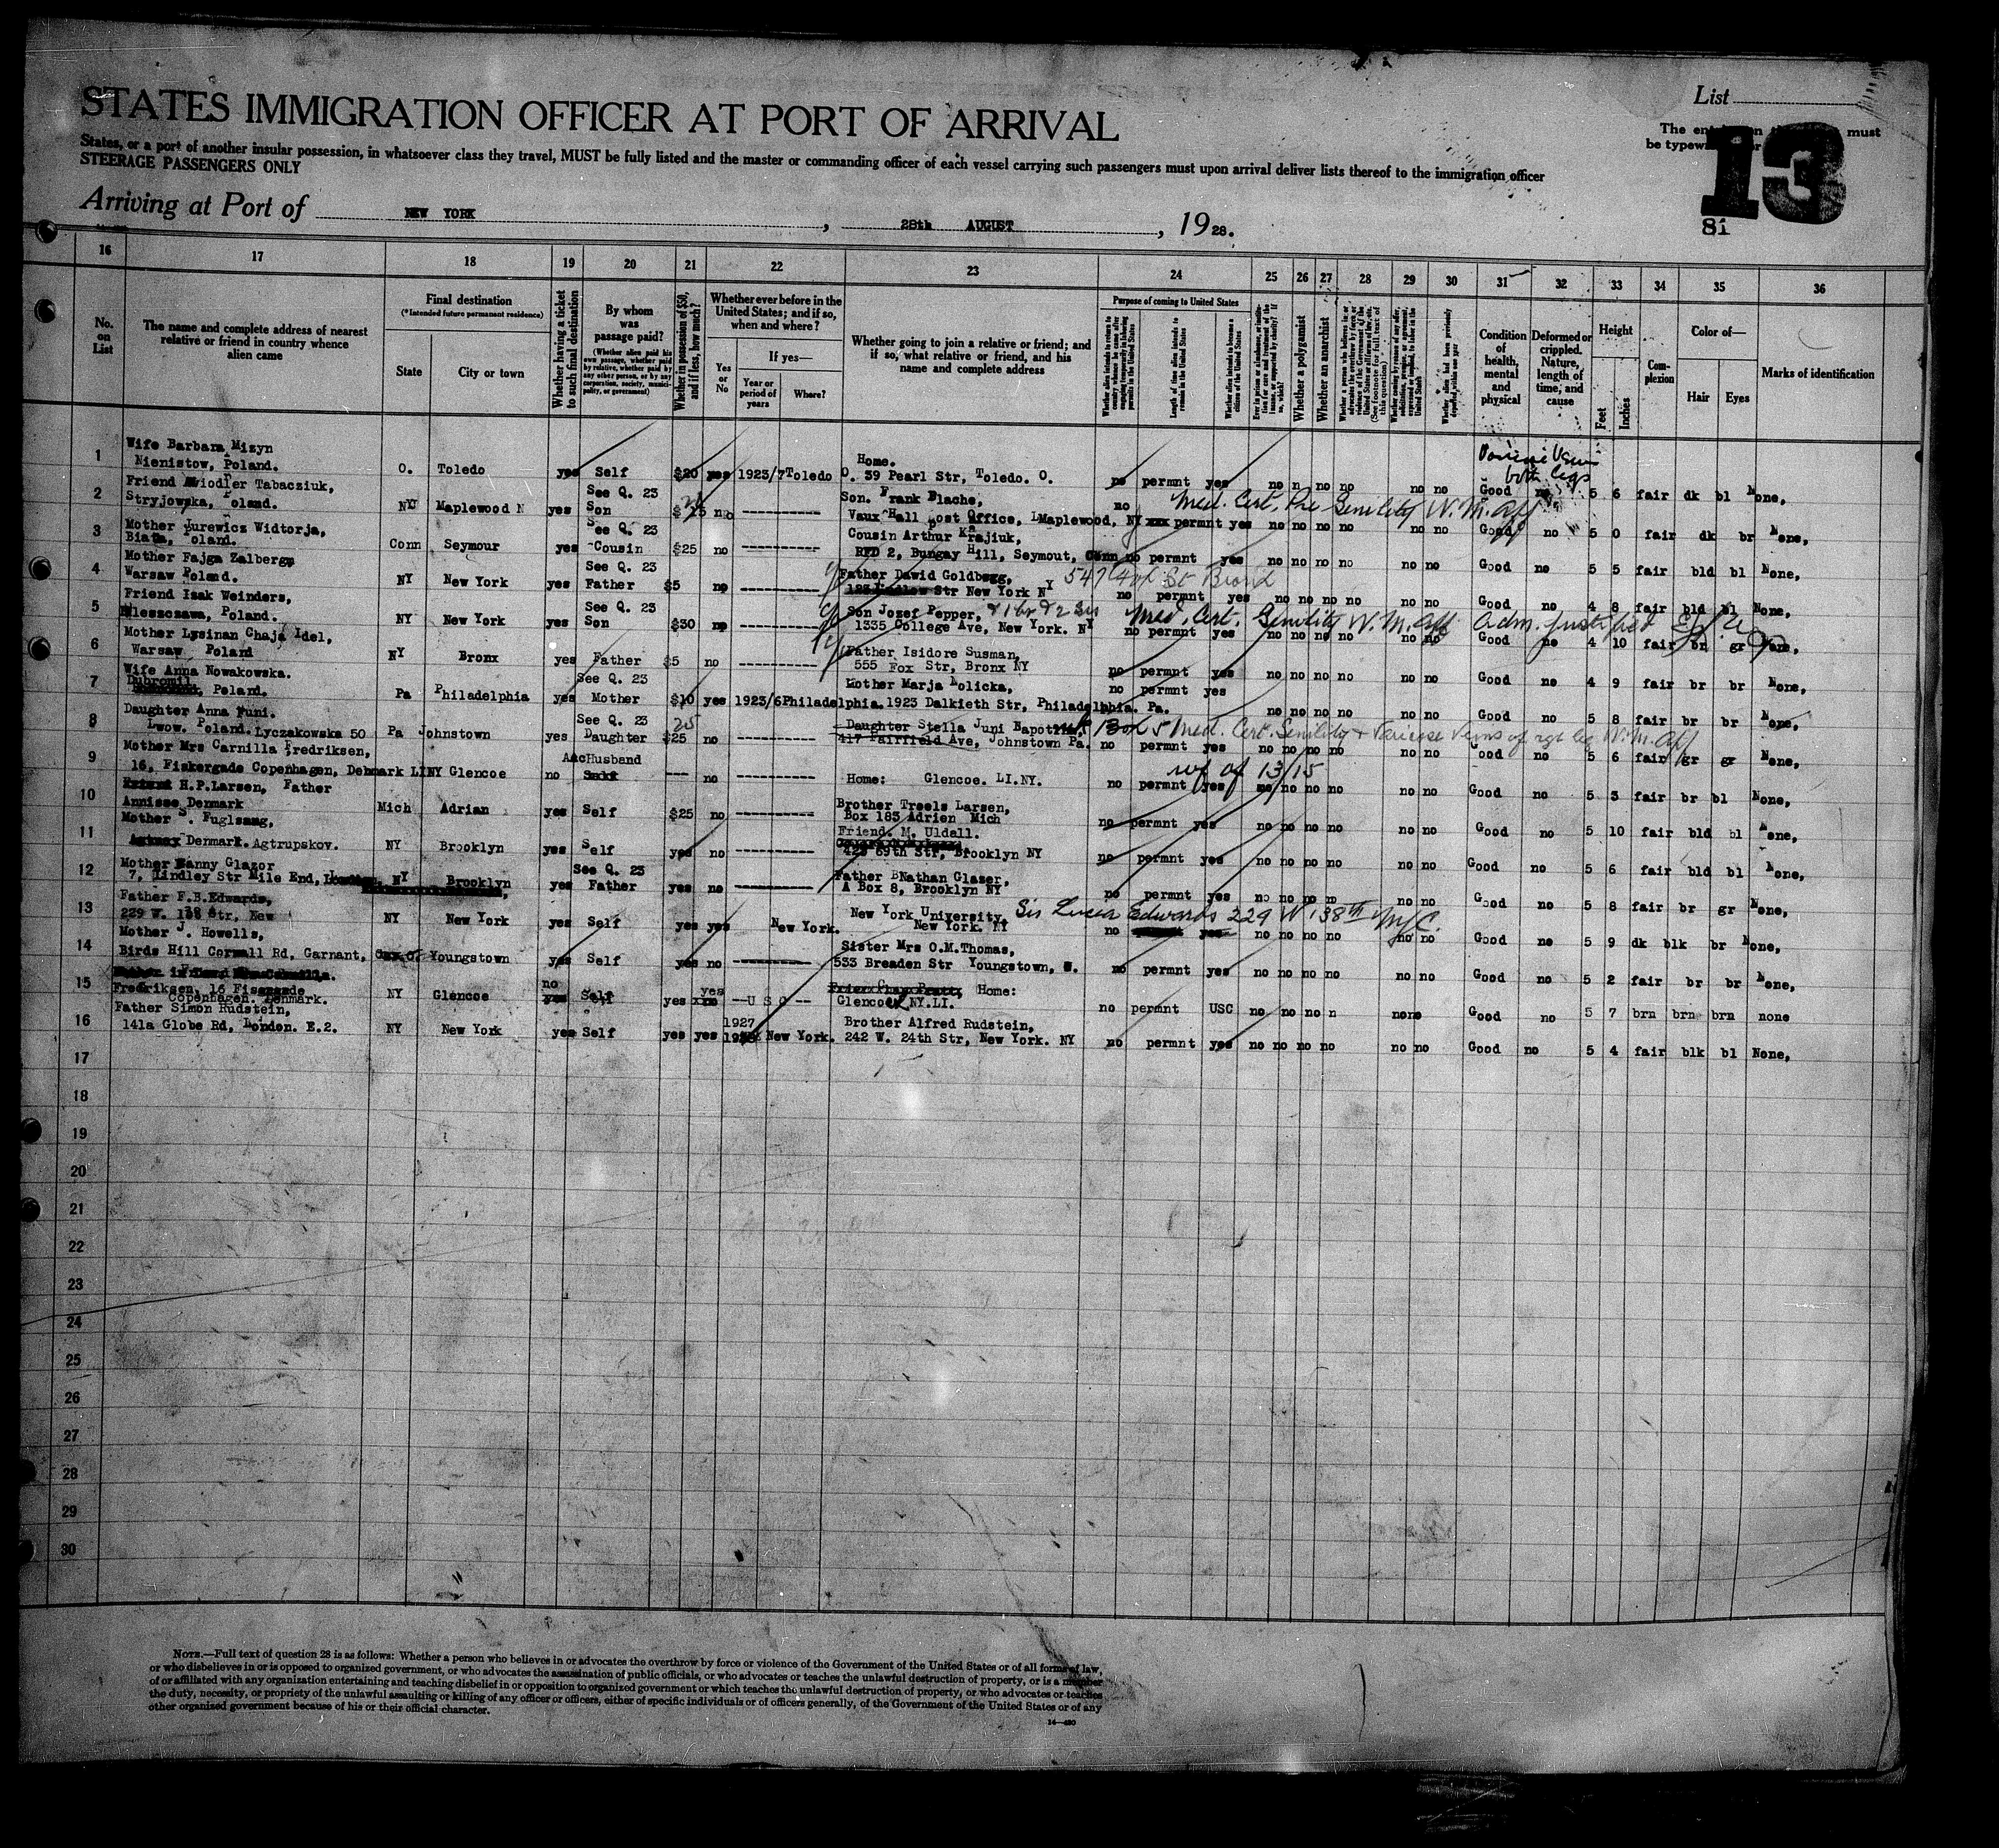 STATES IMMIGRATION OFFICER AT PORT OF ARRIVAL
List
The must
be typew
13
81
States, or a port of another insular possession, in whatsoever class they travel, MUST be fully listed and the master or commanding officer of each vessel carrying such passengers must upon arrival deliver lists thereof to the immigration officer
STEERAGE PASSENGERS ONLY
Arriving at Port of NEW YORK , 28th AUGUST , 1928.
16 17 18 19 20 21 22 23 24 25 26 27 28 29 30 31 32 33 34 35 36
No. on List
The name and complete address of nearest relative or friend in country whence alien came
Final destination
(*Intended future permanent residence)
State
City or town
Whether having a ticket to such final destination
By whom was passage paid?
(Whether alien paid his own passage, whether paid by relative, whether paid by any other person, or by any corporation, society, municipality, or government)
Whether in possession of $50, and if less, how much?
Whether ever before in the United States; and if so, when and where?
Yes or No
If yes—
Year or period of years
Where?
Whether going to join a relative or friend; and if so, what relative or friend, and his name and complete address
Purpose of coming to United States
Length of time alien intends to remain in the United States
Whether alien intends to become a citizen of the United States
Whether a polygamist
Whether an anarchist
Condition of health, mental and physical
Deformed or crippled. Nature, length of time, and cause
Height
Feet
Inches
Complexion
Color of—
Hair
Eyes
Marks of identification
1 Wife Barbara Mizyn
Nienistow, Poland. O. Toledo yes Self $20 yes 1923/7 Toledo O. Home. 39 Pearl Str, Toledo. O. no permnt yes no n no no no no Good no 5 6 fair dk bl None,
both legs
2 Friend Wiodler Tabacziuk,
Stryjowka, Poland. NY Maplewood N yes See Q. 23 Son $25 no Son. Frank Blache,
Vaux Hall Post Office, Maplewood, NY xxx permnt yes no no no no no no Good no 5 0 fair dk br None,
Med. Cert. Pre-Senility W.M.Aff
3 Mother Jurewicz Widtorja,
Biata, Poland. Conn Seymour yes See Q. 23 Cousin $25 no Cousin Arthur Krajiuk,
RFD 2, Bungay Hill, Seymout, Conn no permnt yes no no no no no no Good no 5 5 fair bld bl None,
4 Mother Fajga Zalberga
Warsaw Poland. NY New York yes See Q. 23 Father $5 no Father Dawid Goldbegg,
Str New York NY no permnt yes no no no no no no Good no 4 8 fair bld bl None,
5 Friend Isak Weinders,
Kleszozawa, Poland. NY New York yes See Q. 23 Son $30 no Son Jozef Pepper,
1335 College Ave, New York. NY no permnt yes no no no no no no Good no 4 10 fair bn gr None,
Med. Cert. Senility W.M.Aff Adm. Justified
6 Mother Lysinan Chaja Idel,
Warsaw Poland NY Bronx yes Father $5 no Father Isidore Susman,
555 Fox Str, Bronx NY no permnt yes no no no no no no Good no 4 9 fair br br None,
7 Wife Anna Nowakowska.
Dubromil
Poland. Pa Philadelphia yes See Q. 23 Mother $10 yes 1923/6 Philadelphia. Mother Marja Wolicka,
1923 Dalkieth Str, Philadelphia. Pa. no permnt yes no no no no no no Good no 5 8 fair br br None,
8 Daughter Anna Funi.
Lwow. Poland. Lyczakowska 50 Pa Johnstown yes See Q. 23 Daughter $25 no Daughter Stella Juni
417 Fairfield Ave, Johnstown Pa. no permnt yes no no no no no no Good no 5 6 fair gr gr None,
Box 51 Med. Cert. Senility + Varicose Veins of rgt leg W.M.Aff
9 Mother Mrs Carnilla Fredriksen,
16, Fiskergade Copenhagen, Denmark LI NY Glencoe no Husband --- no Home: Glencoe. LI.NY. no permnt yes no no no no no no Good no 5 3 fair br bl None,
wf of 13/15
10 H.P.Larsen, Father
Annisse Denmark Mich Adrian yes Self $25 no Brother Troels Larsen,
Box 185 Adrien Mich no permnt yes no no no no no no Good no 5 10 fair bld bl None,
11 Mother S. Fuglsang,
Denmark. Agtrupskov. NY Brooklyn yes Self yes no Friend. M. Uldall.
423 69th Str, Brooklyn NY no permnt yes no no no no no no Good no 5 6 fair bld bl None,
12 Mother Fanny Glazor
7, Lindley Str Mile End, NY Brooklyn yes See Q. 23 Father yes no Father Nathan Glazer,
A Box 8, Brooklyn NY no permnt yes no no no no no no Good no 5 8 fair br gr None,
13 Father F.B.Edwards,
229 W. 138 Str, New NY New York yes Self yes yes New York. New York University
New York. NY no no no no no no no Good no 5 9 dk blk br None,
Sis Lucia Edwards 229 W 138th NYC.
14 Mother J. Howells,
Birds Hill Cornwall Rd, Garnant, Youngstown yes Self yes no Sister Mrs O.M.Thomas,
533 Breaden Str Youngstown, no permnt yes no no no no no no Good no 5 2 fair br br None,
15 Fredriksen, 16
Copenhagen. Denmark. NY Glencoe no Self yes yes --U S C-- Home:
Glencoe NY.LI. no permnt USC no no no n none Good no 5 7 brn brn brn none
16 Father Simon Rudstein,
141a Globe Rd, London. E.2. NY New York yes Self yes yes 1927 New York. Brother Alfred Rudstein,
242 W. 24th Str, New York. NY no permnt yes no no no no no no Good no 5 4 fair blk bl None,
17
18
19
20
21
22
23
24
25
26
27
28
29
30
NOTE.—Full text of question 28 is as follows: Whether a person who believes in or advocates the overthrow by force or violence of the Government of the United States or of all forms of law,
or who disbelieves in or is opposed to organized government, or who advocates the assassination of public officials, or who advocates or teaches the unlawful destruction of property, or is a member
of or affiliated with any organization entertaining and teaching disbelief in or opposition to organized government or which teaches the unlawful destruction of property, or who advocates or teaches
the duty, necessity, or propriety of the unlawful assaulting or killing of any officer or officers, either of specific individuals or of officers generally, of the Government of the United States or of any
other organized government because of his or their official character.